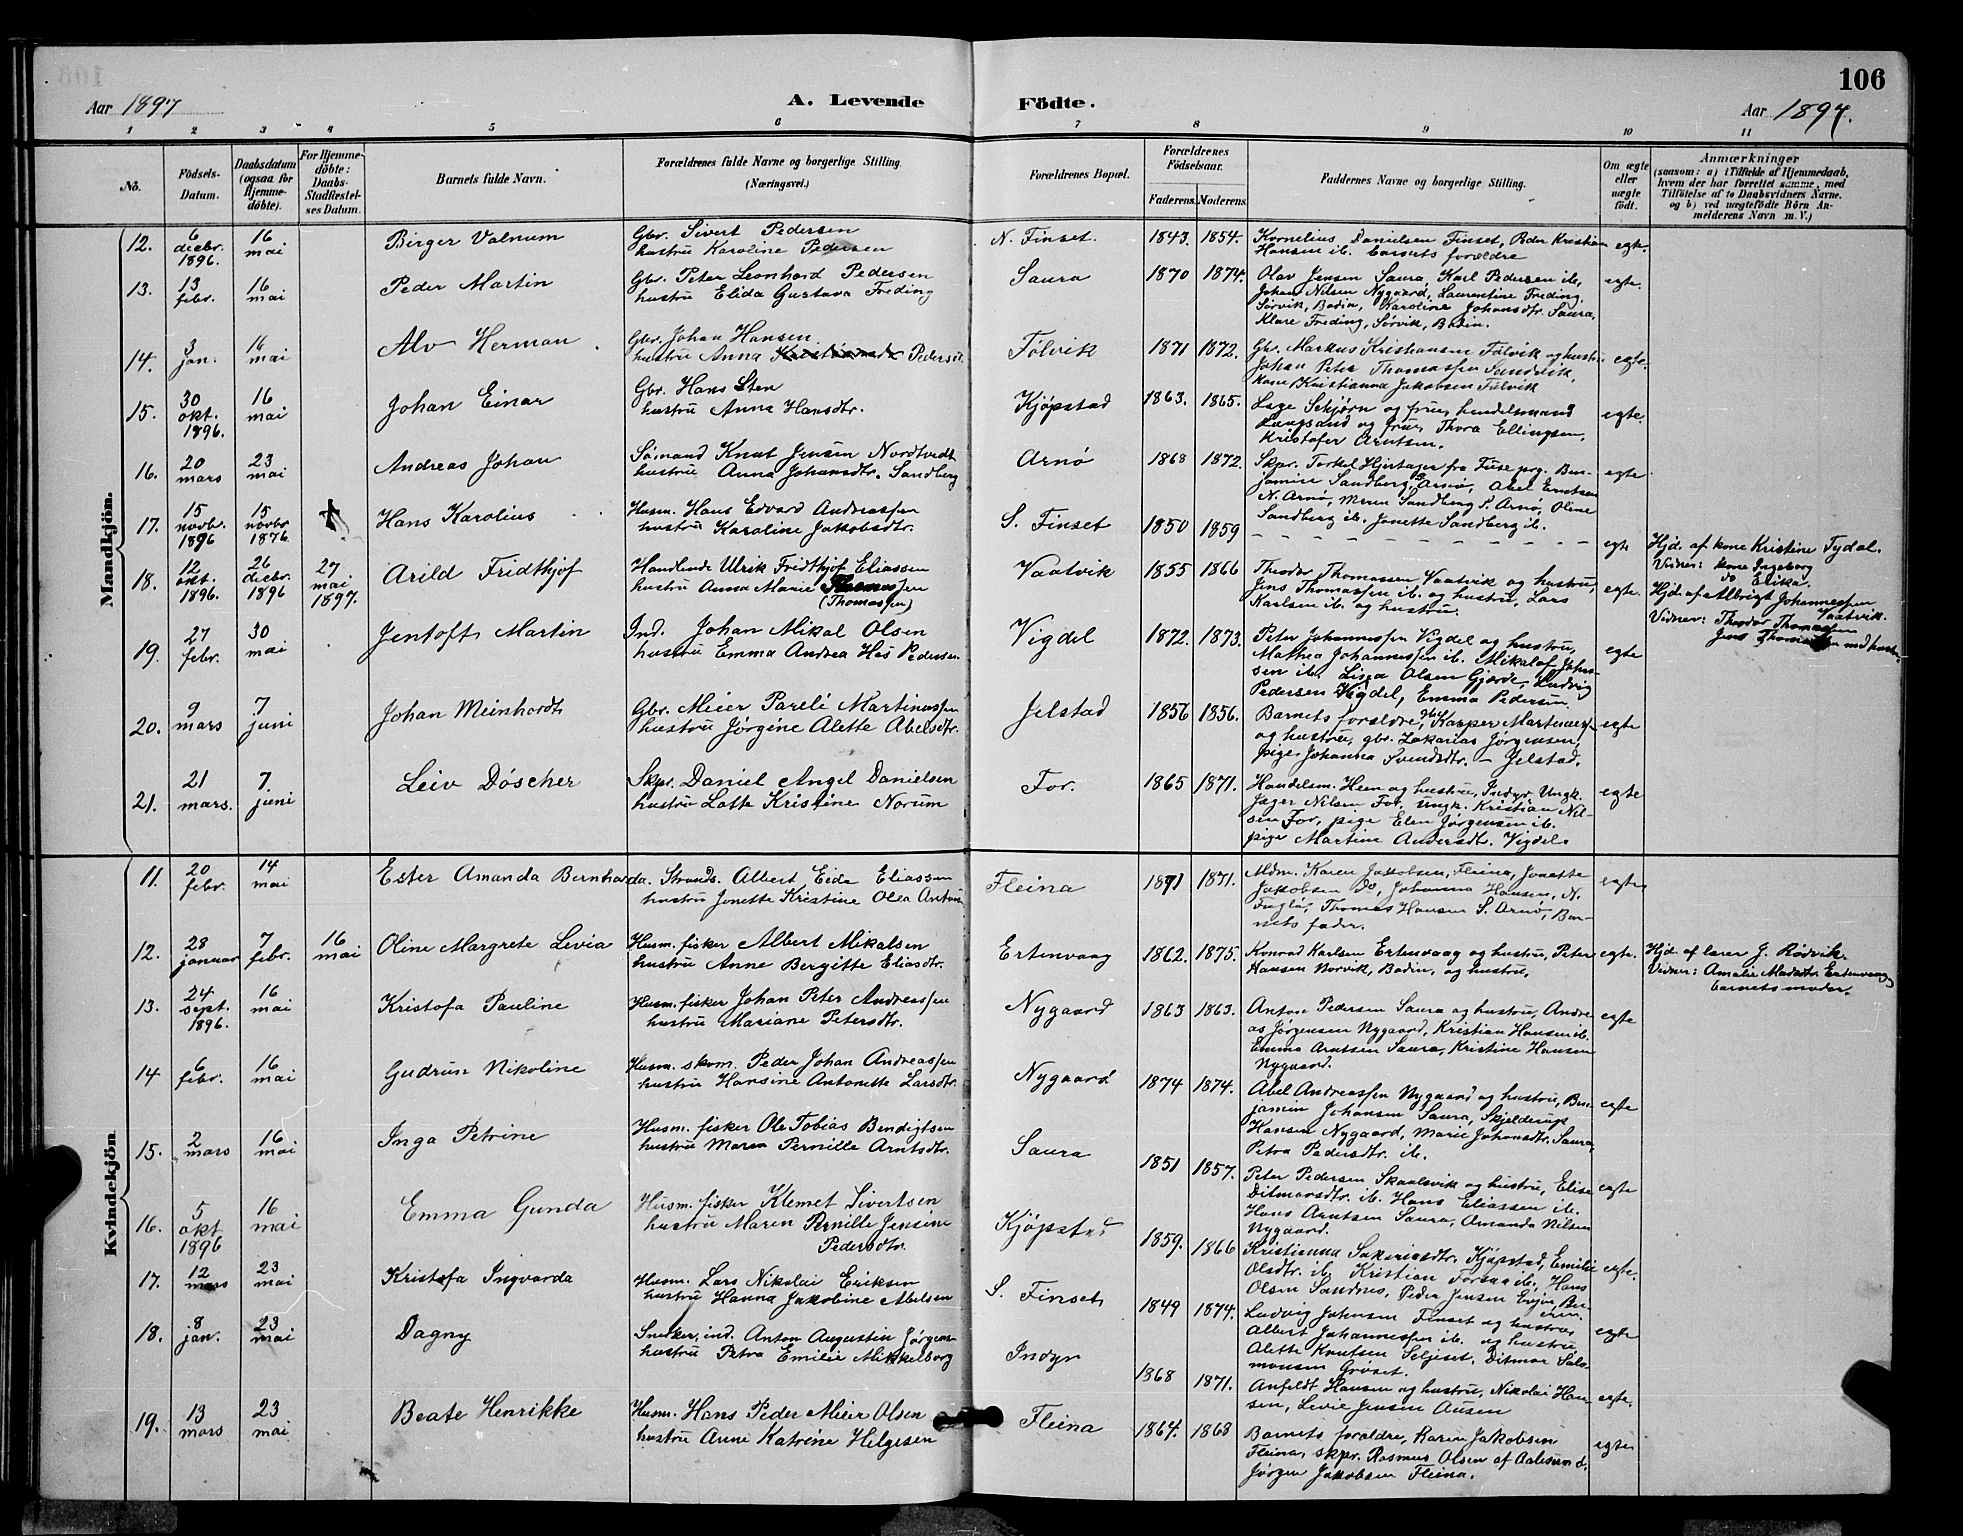 106
Aar 1897
A. Levende
Födte.
Aar 1897.
1 2 3 4 5 6 7 8 9 10 11
No.
Födsels-
Datum.
Daabsdatum
(ogsaa for
Hjemme-
döbte).
For Hjemme-
döbte:
Daabs-
Stadfæstel-
ses Datum.
Barnets fulde Navn.
Forældrenes fulde Navne og borgerlige Stilling.
(Næringsvei.)
Forældrenes Bopæl.
Forældrenes
Födselsaar.
Faderens. Moderens.
Faddernes Navne og borgerlige Stilling.
Om ægte
eller
uægte
födt.
Anmærkninger
(saasom: a) i Tilfælde af Hjemmedaab,
hvem der har forrettet samme, med
Tilföielse af to Daabsvidners Navne.
og b) ved uægtefödte Börn An-
melderens Navn m. V.)
Mandkjön.
12.
6
decbr.
1896.
16
mai
Birger Valnum
Gbr. Sivert Pedersen
hustru Karoline Pedersen
N. Finset.
1843. 1854.
Kornelius Danielsen Finset, Peder Kristian
Hansen ib. barnets forældre
egte.
13.
13
febr.
16
mai
Peder Martin
Gbr. Peter Leonhard Pedersen
hustru Elida Gustava Freding
Saura
1870 1874.
Olav Jensen Saura, Karl Pedersen ib,
Johan Nilsen Nygaard, Laurentine Freding,
Sørvik, Bodin, Karoline Johansdtr. Saura,
Klare Freding, Sørvik, Bodin.
egte.
14.
3
jan.
16
mai
Alv Herman
Gbr. Johan Hansen
hustru Anna Pedersdt.
Følvik
1871 1872.
Gbr. Markus Kristiansen Følvik og hustru
Johan Peter Thomassen Sandvik,
kone Kristianna Jakobsen Følvik
egte.
15.
30
okt.
1896.
16
mai
Johan Einar
Gbr. Hans Sten
hustru Anna Hansdtr.
Kjøpstad
1863. 1865.
Lage Schjørn og frue, handelsmand
Langsand og frue, Thora Ellingsen,
Kristofer Arntsen.
egte.
16.
20
mars
23
mai
Andreas Johan
Sømand Knut Jensen Nordtvedt
hustru Anna Johansdtr. Sandberg
Arnø
1868 1872.
Skpr. Torkel Hjertager fra Fuse prg. Ben-
jamin Sandberg, S. Arnø, Abel Erntsen
N. Arnø, Meren Sandberg S. Arnø, Oline
Sandberg ib. Jonette Sandberg ib.
egte
17.
15
novbr.
1896
15
novbr
1876.
Hans Karolius
Husm. Hans Edvard Andreassen
hustru Karoline Jakobsdtr.
S. Finset
1850 1859
egte
Hjd. af kone Kristine Tydal.
Vidner: kone Ingeborg
do Erika.
18.
12
okt.
1896.
26
decbr.
1896
27
mai
1897.
Arild Fridthjof
Handlende Ulrik Fridthjof Eliassen
hustru Anna Marie
(Thomassen)
Vaatvik
1855 1866
Theodor Thomassen Vaatvik og hustru,
Jens Thomassen ib. og hustru, Lars
Karlsen ib. og hustru.
egte.
Hjd. af Albrigt Johannessen
Vaatvik.
Vidner: Theodor Thomassen
Jens Thomassen med hustru.
19.
27
febr.
30
mai
Jentoft Martin
Ind. Johan Mikal Olsen
hustru Emma Andrea Hes Pedersen
Vigdel
1872. 1873.
Peter Johannessen Vigdel og hustru,
Mathea Johannessen ib. Mikal Johan-
sen ib. Lina Olsen Gjærde, Ludvig
Pedersen Vigdel, Emma Pedersen.
egte
20.
9
mars
7
juni
Johan Meinhardt
Gbr. Meier Pareli Martinussen
hustru Jørgine Alette Abelsdtr.
Jelstad
1856 1856.
Barnets forældre, Gbr. Kasper Martinuss.
og hustru, gbr. Zakarias Jørgensen,
pige Johanna Svendsdtr. – Jelstad.
egte
21.
21
mars.
7.
juni
Leiv Döscher
Skpr. Daniel Angel Danielsen
hustru Lotte Kristine Norum
For.
1865 1871.
Handelsm. Hem og hustru, Indyr. Ungk.
Jæger Nilsen For, ungk. Kristian Nil-
sen For, pige Elen Jørgensen ib.
pige Martine Andersdt. Vigdel.
egte
Kvindekjön
11.
20
febr.
14
mai
Ester Amanda Bernharda.
Strands. Albert Eide Eliassen
hustru Jonette Kristine Olea Antons
Fleina
1871 1871.
Mdm. Karen Jakobsen, Fleina, Jonette
Jakobsen do, Johanna Hansen, N.
Fuglø, Thomas Hansen S. Arnø, Bar-
nets fader.
egte
12.
28
januar
7
febr.
16
mai
Oline Margrete Levia
Husm. fisker Albert Mikalsen
hustru Anne Bergitte Eliasdtr.
Ertenvaag
1862. 1875.
Konrad Karlsen Ertenvaag og hustru, Peter
Hansen Norvik, Bodin, og hustru,
egte.
Hjd. af lærer J. Rødvik.
Vidner: Amalie Madsdtr. Ertenvaag
barnets moder.
13.
24
sept.
1896.
16
mai
Kristofa Pauline
Husm. fisker Johan Peter Andreassen
hustru Mariane Petersdtr.
Nygaard
1863 1863.
Anton Pedersen Saura og hustru, Andre-
as Jørgensen Nygaard, Kristian Hansen ib.
Emma Arntsen Saura, Kristine Hansen
Nygaard.
egte
14
6
febr.
16
mai
Gudrun Nikoline
Husm. skom. Peder Johan Andreassen
hustru Hansine Antonette Larsdtr.
Nygaard
1874 1874.
Abel Andreassen Nygaard og hustru, Ben-
jamin Johansen Saura, Skjelderup
Hansen Nygaard, Marie Johansdtr. Saura,
Petra Pedersdtr. ib.
egte
15.
2
mars
16
mai
Inga Petrine
Husm. fisker Ole Tobias Bendigtsen
hustru Maren Pernille Arntsdtr.
Saura
1851 1857.
Peter Pedersen Skaalsvik og hustru, Elise
Ditmarsdtr. ib. Hans Eliassen ib.
Hans Arntsen Saura, Amanda Nilsen
Nygaard.
egte
16.
5
okt
1896
16
mai
Emma Gunda
Husm. fisker Klemet Sivertsen
hustru Maren Pernille Jensine
Pedersdtr.
Kjøpstad
1859. 1866
Kristianna Sakariasdtr. Kjøpstad, Emilie
Olsdtr. ib. Kristian Forsaa ib., Hans
Olsen Sandnes, Peder Jensen
egte.
17.
12
mars
23
mai
Kristofa Ingvarda
Husm. Lars Nikolai Eriksen
hustru Hanna Jakobine Abelsen
S. Finset
1849 1874.
Ludvig Johnsen Finset og hustru,
Albert Johannessen ib. og hustru
Alette Knutsen Seljeset, Ditmar Salo-
monsen Grøset.
egte
18.
8
jan.
23
mai
Dagny
Snedker, ind. Anton Augustin Jørgens.
hustru Petra Emilie Mikkelborg
Indyr
1868 1871.
Anfeldt Hansen og hustru, Nikolai Han-
sen, Levie Jensen Ausen
egte.
19.
13
mars
23
mai
Beate Henrikke
Husm. Hans Peder Meier Olsen
hustru Anne Katrine Helgesen
Fleina
1864. 1868
Barnets forældre, Karen Jakobsen
Fleina, skpr. Rasmus Olsen af Aalesund.
Jørgen Jakobsen Fleina.
egte